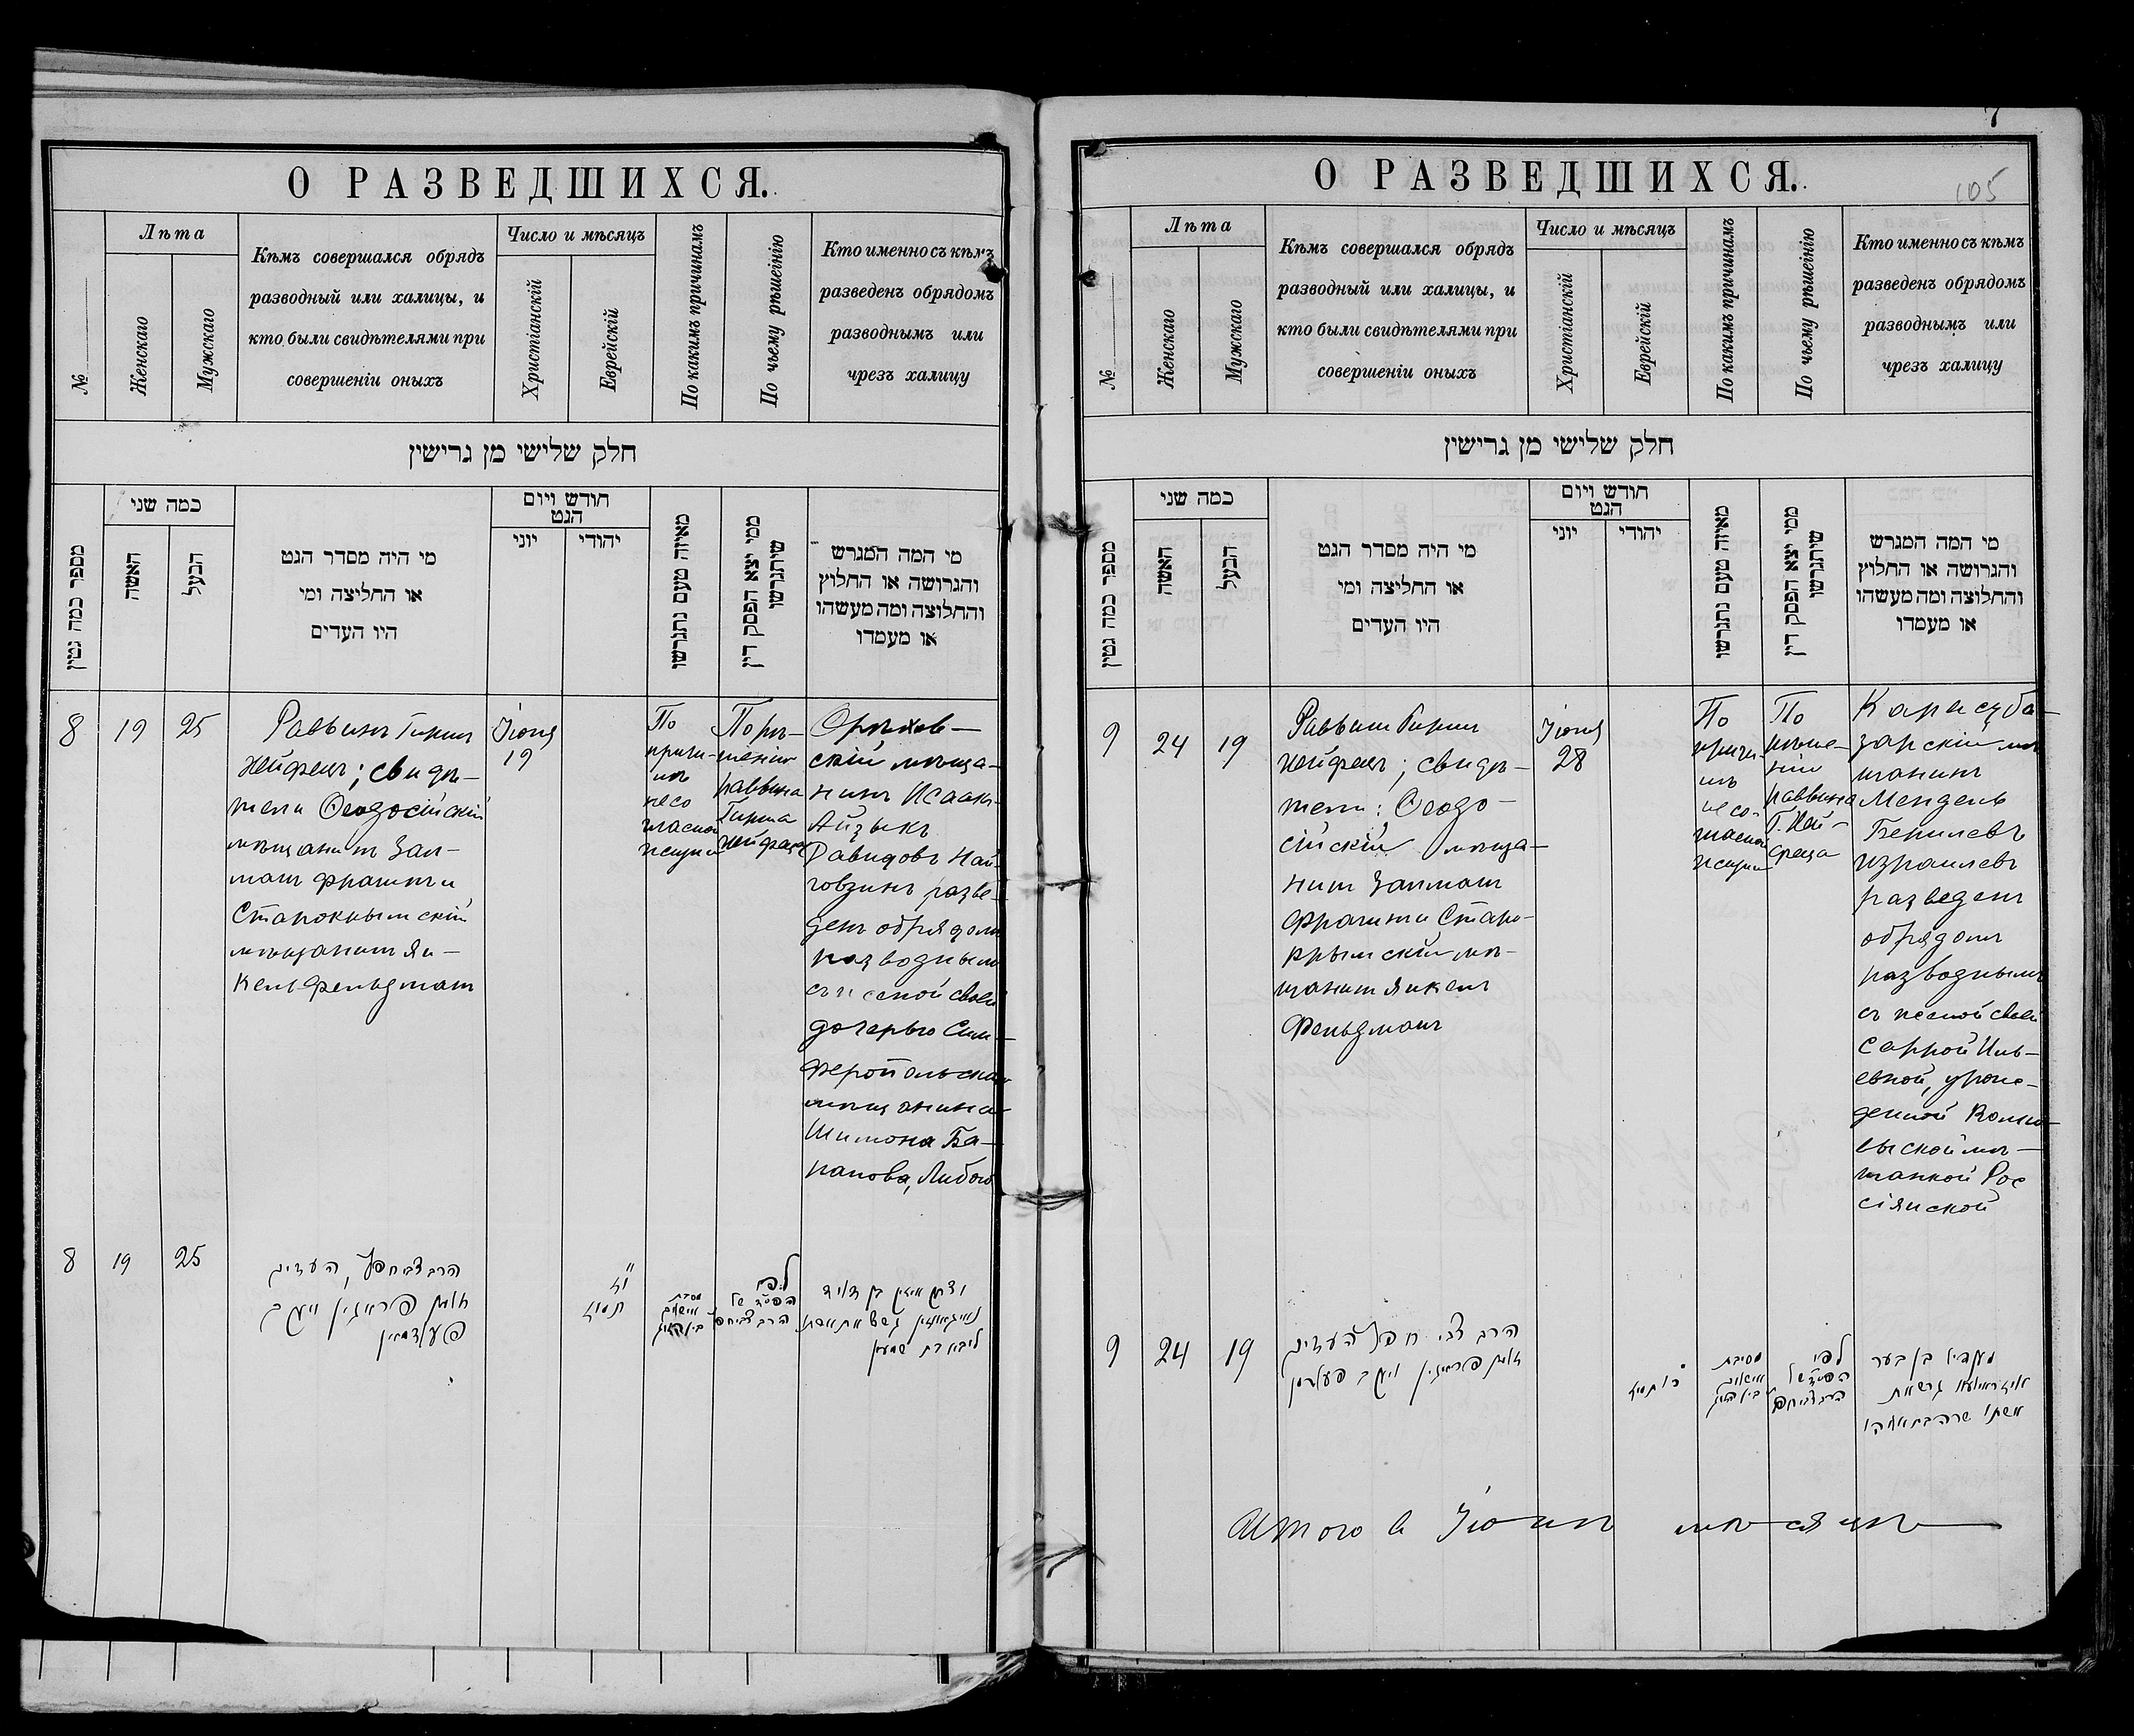 О РАЗВЕДШИХСЯ.
№
Лѣта
Женскаго
Мужскаго
Кѣмъ совершался обрядъ
разводный или халицы, и
кто были свидѣтелями при
совершеніи оныхъ
Число и мѣсяцъ
Христіанскій
Еврейскій
По какимъ причинамъ
По чьему рѣшенію
Кто именно съ кѣмъ
разведенъ обрядомъ
разводнымъ или
чрезъ халицу
חלק שלישי מן גרישין
מספר כמה גטין
כמה שני
האשה
הבעל
מי היה מסדר הגט
או החליצה ומי
היו העדים
חודש ויום
הגט
יוני
יהודי
מאיזה טעם נתגרשו
ממי יצא הפסק דין
שיתגרשו
מי המה המגרש
והגרושה או החלוץ
והחלוצה ומה מעשהו
או מעמדו
8
19
25
Раввинъ Гирш
Хейфецъ; свидѣ-
тели Ѳеодосійскій
мѣщанинъ Зал-
манъ Фрагинъ и
Старокрымскій
мѣщанинъ Ян-
кель Фельдманъ
Іюня
19
По
причи-
нѣ
несо
гласной
жизни
По рѣ-
шенію
раввина
Гирша
Хейфеца
Орѣхов-
скій мѣща-
нинъ Исаакъ
Айзыкъ
Давидовъ Най
говзинъ разве-
денъ обрядомъ
разводнымъ
съ женой своей
дочерью Сим-
феропольскаго
мѣщанина
Шимона Ба-
ранова, Любою
8
19
25
הרב צבי חפץ, העדים
זלמן פראגין ויעקב
פעלדמאן
תמוז
מסיבת
לפי
הפס״ד של
הרב צבי חפץ
בן דוד
גרש את אשתו
ליבא בת שמעון
7
105
О РАЗВЕДШИХСЯ.
№
Лѣта
Женскаго
Мужскаго
Кѣмъ совершался обрядъ
разводный или халицы, и
кто были свидѣтелями при
совершеніи оныхъ
Число и мѣсяцъ
Христіанскій
Еврейскій
По какимъ причинамъ
По чьему рѣшенію
Кто именно съ кѣмъ
разведенъ обрядомъ
разводнымъ или
чрезъ халицу
חלק שלישי מן גרישין
מספר כמה גטין
כמה שני
האשה
הבעל
מי היה מסדר הגט
או החליצה ומי
היו העדים
חודש ויום
הגט
יוני
יהודי
מאיזה טעם נתגרשו
ממי יצא הפסק דין
שיתגרשו
מי המה המגרש
והגרושה או החלוץ
והחלוצה ומה מעשהו
או מעמדו
9
24
19
Раввинъ Гирш
Хейфецъ; свидѣ-
тели: Ѳеодо-
сійскій мѣща-
нинъ Залманъ
Фрагинъ и Старо-
крымскій мѣ-
щанинъ Янкель
Фельдманъ
Іюня
28
По
причи-
нѣ
несо-
гласной
жизни
По
рѣше-
нію
раввина
Г. Хей-
феца
Карасуба-
зарскій мѣ
щанинъ
Мендель
Берилевъ
Израилевъ
разведенъ
обрядомъ
разводнымъ
съ женой своей
Саррой Иль-
евной, урож-
денной Волко-
выской мѣ-
щанкой Рос
сіянской
9
24
19
הרב צבי חפץ העדים
זלמן פראגין ויעקב פעלדמן
תמוז
מסיבת
לפי
הפס״ד של
הרב צבי חפץ
מענדיל בן בער
גרש את
אשתו שרה בת אליהו
Итого въ Іюнѣ мѣсяцѣ